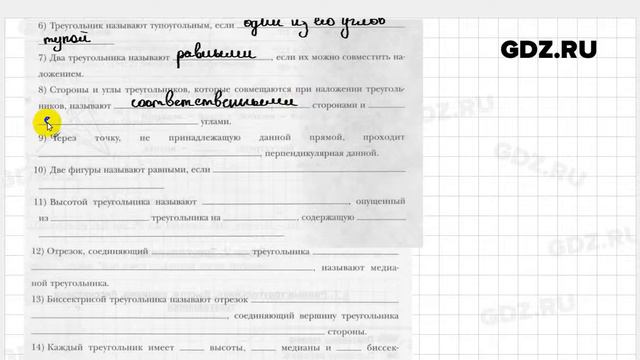 6) Треугольник называют тупоугольным, если один из его углов
тупой
GDZ.RU
7) Два треугольника называют равными, если их можно совместить на-
ложением.
8) Стороны и углы треугольников, которые совмещаются при наложении треуголь-
ников, называют соответственными сторонами и
с углами.
9) Через точку, не принадлежащую данной прямой, проходит
, перпендикулярная данной.
10) Две фигуры называют равными, если
11) Высотой треугольника называют , опущенный
из треугольника на , содержащую
12) Отрезок, соединяющий треугольника
, называют медиа-
ной треугольника.
13) Биссектрисой треугольника называют отрезок
, соединяющий вершину треугольника
стороны.
14) Каждый треугольник имеет высоты, медианы и биссек-
GDZ.RU
GDZ.RU
GDZ.RU